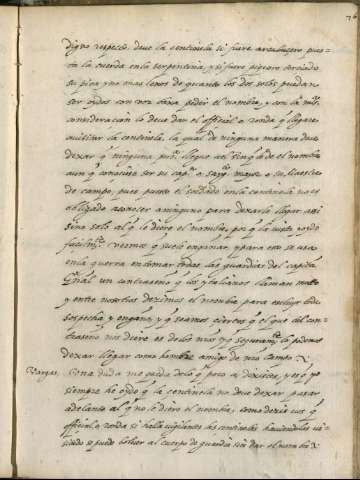 digno respecto. deve la centinela si fuere arcabucero pues-
ta la cuerda en la serpentina, y si fuere piquero terciado
su pica y no mas lexos de quanto los dos solos puedan
ser oydos con voz baxa pedir el nombre, y con la mis.
consideracion lo deve dar el official o ronda q llegare
a visitar la centinela, la qual de ninguna manera deve
dexar q ninguna per. llegue a el sin q le de el nombre
aun q conozca ser su cap. o sarg. mayor o su Maestre
de campo, pues puesto el soldado en la centinela no es
obligado a conocer a ninguno para dexarle llegar a si
sino solo al q le diere el nombre, por q la vista
facilm. vemos q suele engañar, y para esto se usa
en la guerra en tomar todas las guardias del capitan
General un contraseño q los ytalianos llaman
y entre nosotros dezimos el nombre para excluyr toda
sospecha y engaño, y q seamos ciertos q el que tal con-
traseño nos diere es de los nros y q seguram. le podemos
dexar llegar como hombre amigo de nro campo.
Vargas. Una duda me queda de lo q aveis dicho, y es q yo
siempre he oydo q la centinela no deve dexar pasar
adelante al q no le diere el nombre, como dezis q
official o ronda si halla vigilante las centinelas haviendolas vi-
sitado se puede bolver al cuerpo de guardia sin dar el nombre